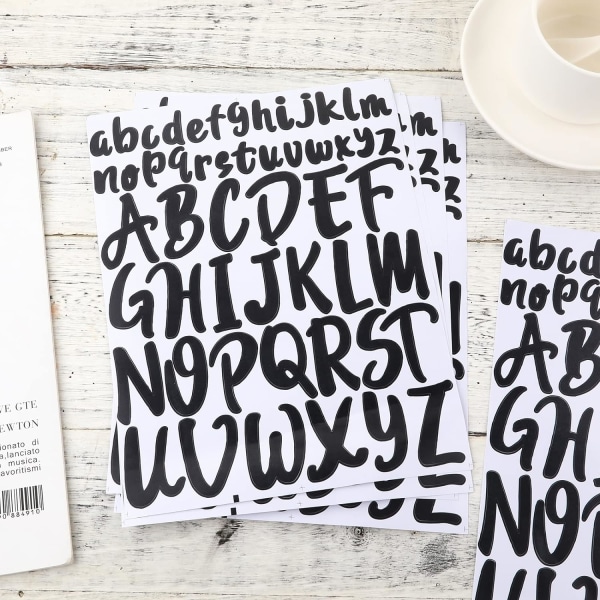 abcdefghijklm
nopqrstuvwxyz
ABCDEF
GHIJKLM
NOPQRST
UVWXYZ
m
z
Z
abcd
nopq
AB
GH
NO
UV
BER
VE GTE
EWTON
ionato di
a,lanciato
musica.
avoritismi
0 884910